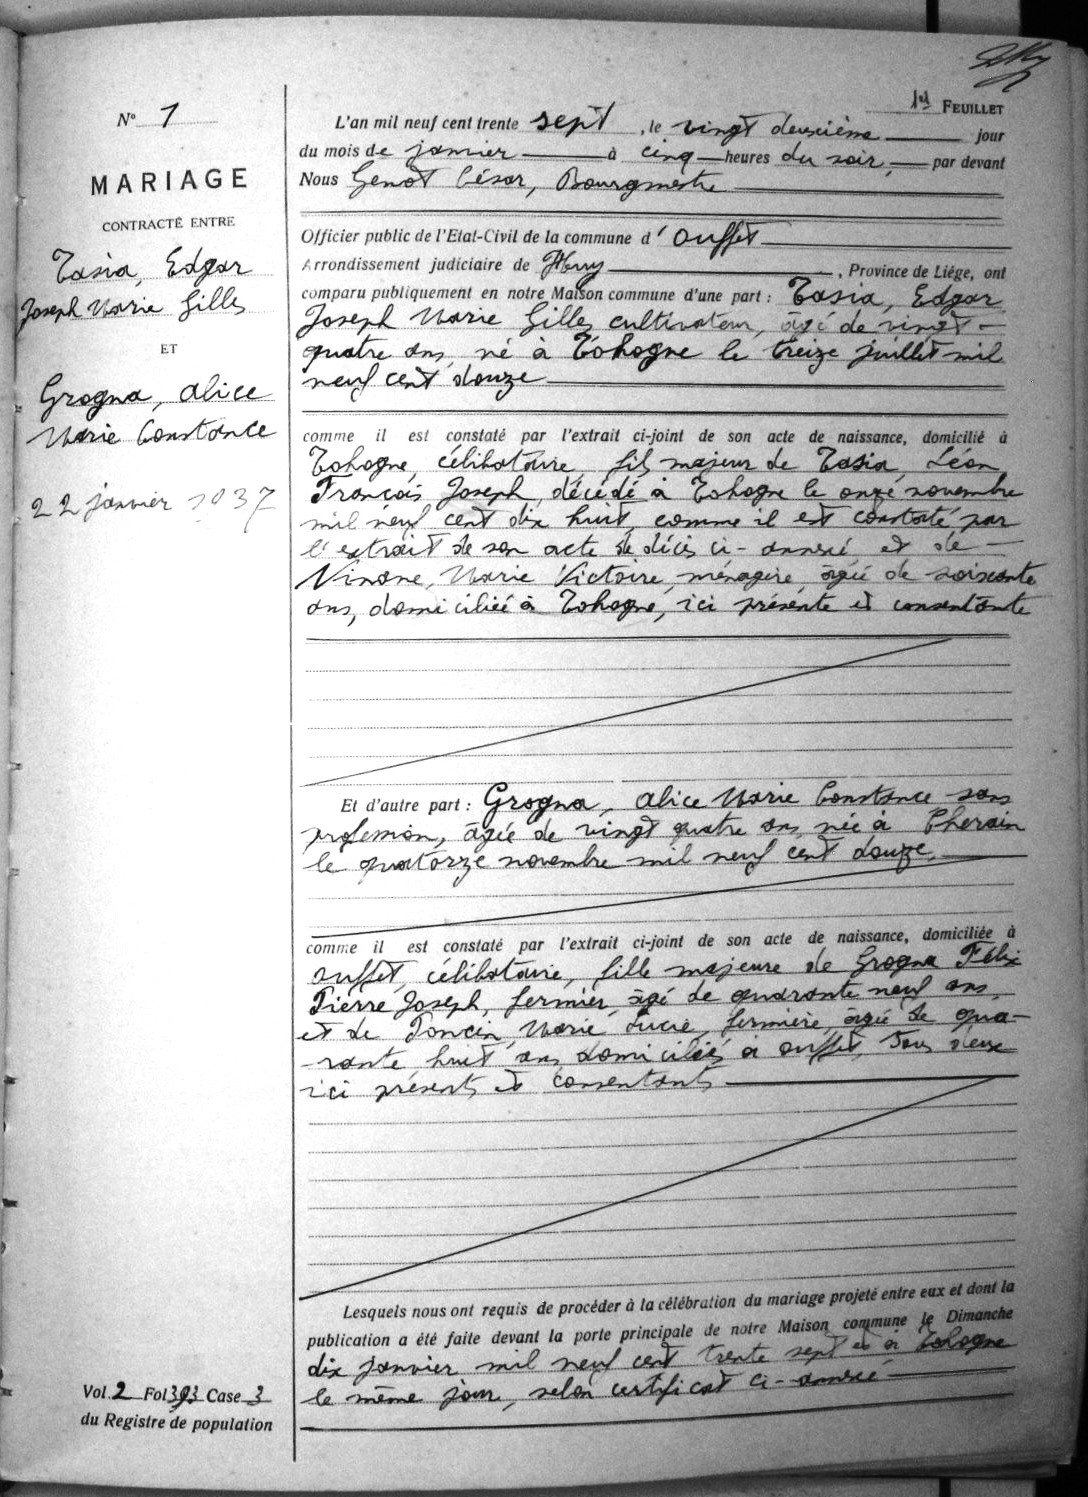 1er FEUILLET
N° 1
MARIAGE
CONTRACTÉ ENTRE
Tasia, Edgar
Joseph Marie Gilles
ET
Grogna, Alice
Marie Constance
22 janvier 1937
L'an mil neuf cent trente sept, le vingt deuxième jour
du mois de janvier à cinq heures du soir, par devant
Nous Genot César, Bourgmestre
Officier public de l'Etat-Civil de la commune d'Ouffet
Arrondissement judiciaire de Huy, Province de Liége, ont
comparu publiquement en notre Maison commune d'une part : Tasia, Edgar
Joseph Marie Gilles cultivateur, âgé de vingt-
quatre ans, né à Tohogne le treize juillet mil
neuf cent douze
comme il est constaté par l'extrait ci-joint de son acte de naissance, domicilié à
Tohogne, célibataire, fils majeur de Tasia, Léon
François Joseph, décédé à Tohogne le onze novembre
mil neuf cent dix huit, comme il est constaté par
l'extrait de son acte de décès ci-annexé et de
Ninane, Marie Victoire, ménagère, âgée de soixante
ans, domiciliée à Tohogne, ici présente et consentante
Et d'autre part : Grogna, Alice Marie Constance sans
profession, âgée de vingt quatre ans, née à Cherain
le quatorze novembre mil neuf cent douze,
comme il est constaté par l'extrait ci-joint de son acte de naissance, domiciliée à
Ouffet, célibataire, fille majeure de Grogna Félix
Pierre Joseph, fermier, âgé de quarante neuf ans,
et de Poncin, Marie Lucie, fermière, âgée de qua-
rante huit ans domiciliés à Ouffet, Tous deux
ici présents et consentants
Lesquels nous ont requis de procéder à la célébration du mariage projeté entre eux et dont la
publication a été faite devant la porte principale de notre Maison commune le Dimanche
dix janvier mil neuf cent trente sept et à Tohogne
le même jour, selon certificat ci-annexé
Vol. 2 Fol 393 Case 3
du Registre de population